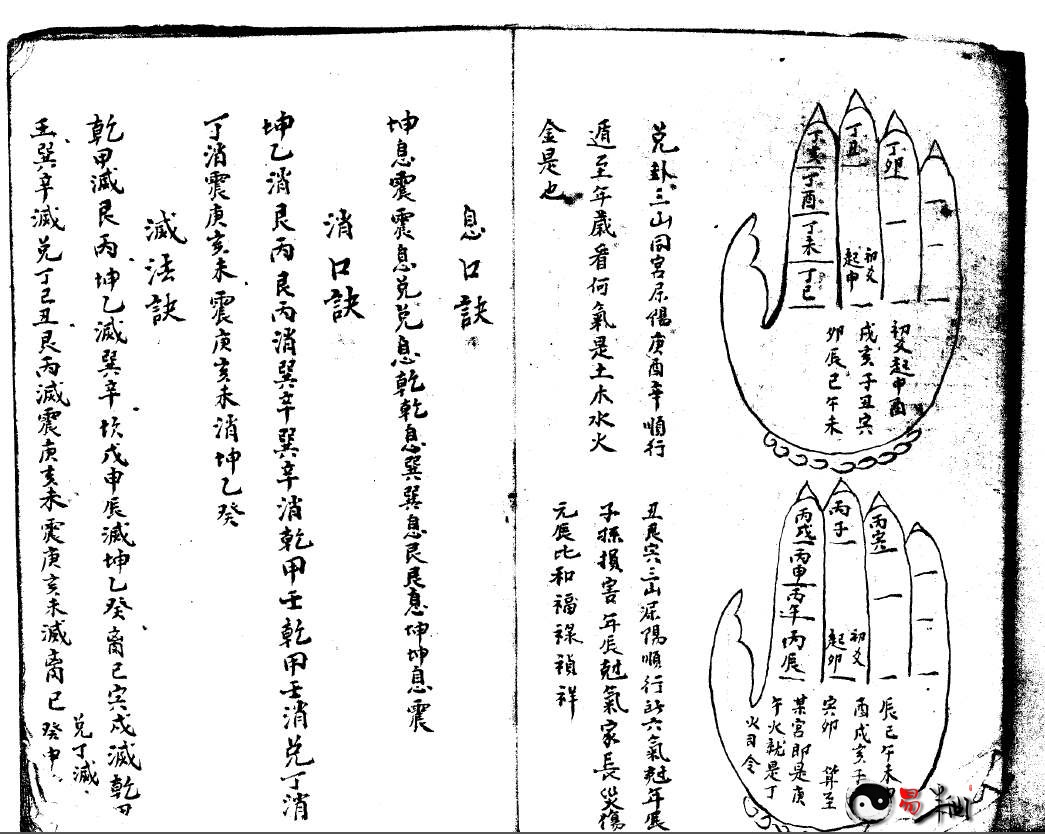 丁卯
丁丑
丁亥
丁酉
丁未
丁巳
初爻
起申
初爻起申酉
戌亥子丑寅
卯辰巳午未
兌卦三山同宮屬陽庚酉辛順行
遁至年歲看何氣是土木水火
金是也
丙寅
丙子
丙戌
丙申
丙午
丙辰
初爻
起卯
辰巳午未
酉戌亥子
寅卯 算至
某宮即是庚
午火就是丁
火司令
丑艮寅三山屬陽順行 六氣尅年辰
子孫損害年辰尅氣家長災傷
元辰比和福祿禎祥
息口訣
坤息震震息兌兌息乾乾息巽巽息艮艮息坤坤息震
消口訣
坤乙消艮丙艮丙消巽辛巽辛消乾甲壬乾甲壬消兌丁消
丁消震庚亥未震庚亥未消坤乙癸
滅法訣
乾甲滅艮丙坤乙滅巽辛坎戊申辰滅坤乙癸离己寅戌滅乾甲
壬巽辛滅兌丁巳丑艮丙滅震庚亥未震庚亥未滅离己
癸申
兌丁滅
易